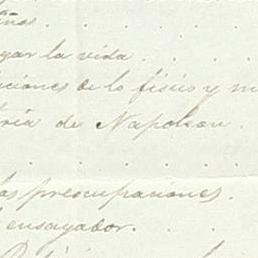 gar la vida . . .
ciones de lo fisico y m
ria de Napoleon .
as preocupaciones .
ensayador .